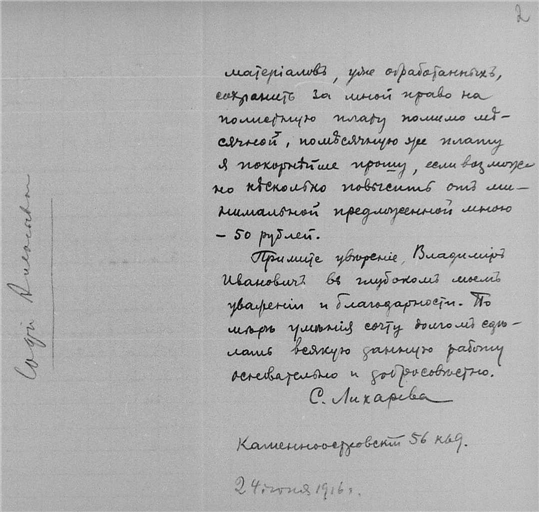 2
матеріаловъ, уже обработанныхъ,
сохранить за мной право на
полистную плату помимо мѣ-
сячной, помѣсячную же плату
я покорнѣйше прошу, если возможно
но нѣсколько повысить отъ ми-
нимальной предложенной мною
– 50 рублей.
Примите увѣреніе, Владиміръ
Ивановичъ въ глубокомъ моемъ
уваженіи и благодарности. По
мѣрѣ умѣнія сочту долгомъ сдѣ-
лать всякую данную работу
основательно и добросовѣстно.
С. Лихарева
Каменноостровскій 56 кв 9.
24 іюня 1916 г.